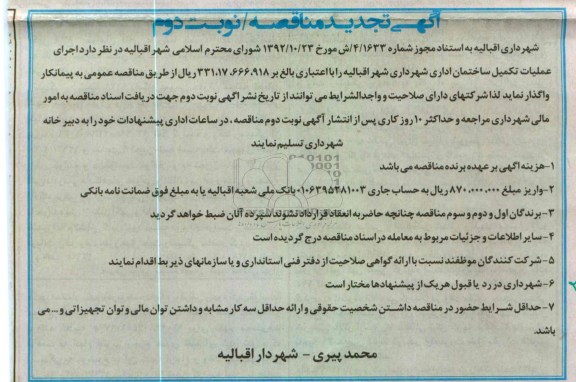 آگهی تجدید مناقصه/نوبت دوم
شهرداری اقبالیه به استناد مجوز شماره ۴/۱۶۳۳/ش مورخ ۱۳۹۲/۱۰/۲۳ شورای محترم اسلامی شهر اقبالیه در نظر دارد اجرای
عملیات تکمیل ساختمان اداری شهرداری شهر اقبالیه را با اعتباری بالغ بر ۳۳۱،۱۷،۶۶۶،۹۱۸ ریال از طریق مناقصه عمومی به پیمانکار
واگذار نماید لذا شرکتهای دارای صلاحیت و واجدالشرایط می توانند از تاریخ نشر اگهی نوبت دوم جهت دریافت اسناد مناقصه به امور
مالی شهرداری مراجعه و حداکثر ۱۰ روز کاری پس از انتشار آگهی نوبت دوم مناقصه ، در ساعات اداری پیشنهادات خود را به دبیر خانه
شهرداری تسلیم نمایند
۱-هزینه اگهی بر عهده برنده مناقصه می باشد
۲-واریز مبلغ ۸۷۰،۰۰۰،۰۰۰ ریال به حساب جاری ۰۱۰۶۳۹۵۴۸۱۰۰۳ بانک ملی شعبه اقبالیه یا به مبلغ فوق ضمانت نامه بانکی
۳-برندگان اول و دوم و سوم مناقصه چنانچه حاضر به انعقاد قرارداد نشوند سپرده آنان ضبط خواهد گردید
۴-سایر اطلاعات و جزئیات مربوط به معامله در اسناد مناقصه درج گردیده است
۵-شرکت کنندگان موظفند نسبت با ارائه گواهی صلاحیت از دفتر فنی استانداری و یا سازمانهای ذیربط اقدام نمایند
۶-شهرداری در رد یا قبول هر یک از پیشنهادها مختار است
۷-حداقل شرایط حضور در مناقصه داشتن شخصیت حقوقی و ارائه حداقل سه کار مشابه و داشتن توان مالی و توان تجهیزاتی و...می
باشد.
محمد پیری - شهردار اقبالیه